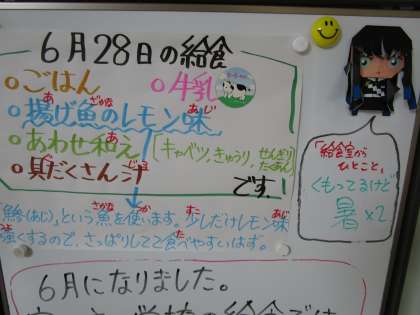 6月28日の給食
ごはん
牛乳
揚げ魚のレモン味
あわせ和え
キャベツ,きゅうり,せんぎり
たくあん
具だくさん汁
です。
「鯵(あじ)」という魚を使います。少しだけレモン味
強くするので、さっぱりしてて食べやすいはず。
「給食室が
ひとこと」
くもってるけど
暑×2
6月になりました。